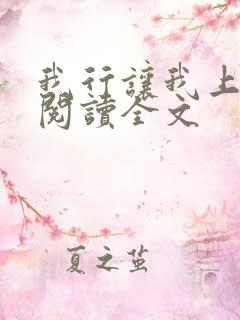 我行讓我上
閱讀全文
夏之茧